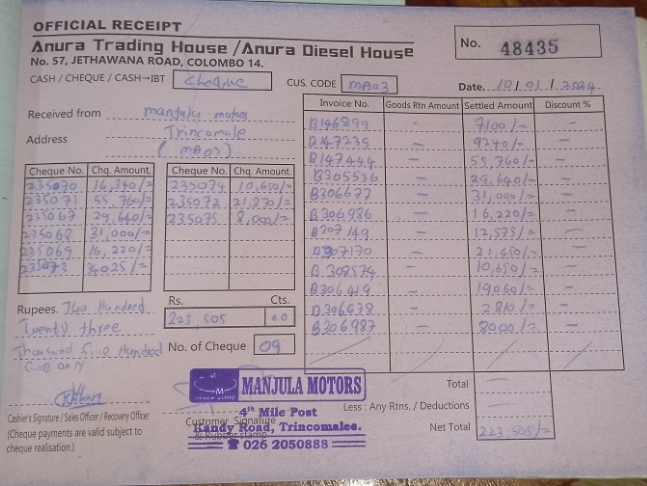 OFFICIAL RECEIPT
Anura Trading House / Anura Diesel House
No. 57, JETHAWANA ROAD, COLOMBO 14.
No. 48435
CASH / CHEQUE / CASH→IBT cheque
CUS. CODE MA03
Date. 10/01/2024
Received from manjula motors
Address Trincomale
(MA03)
Cheque No. Chq. Amount. Cheque No. Chq. Amount.
235070 16,340/= 235074 10,650/=
235071 55,760/= 235072 21,870/=
235067 29,640/= 235075 8,000/=
235068 31,000/=
235069 16,220/=
235073 34025/=
Invoice No. Goods Rtn Amount Settled Amount Discount %
B146899 - 7100/= -
B147235 - 9240/= -
B147444 - 55,760/= -
B305536 - 29,640/= -
B306677 - 31,000/= -
B306986 - 16,220/= -
B307149 - 12,575/= -
B307170 - 21,450/= -
B308574 - 10,650/= -
B306419 - 19060/= -
B306678 - 2810/= -
B306987 - 8000/= -
Rupees. Two Hundred
Twenty three
Thousand Five Hundred
Five only
Rs. Cts.
223,505 00
No. of Cheque 09
Cashier's Signature / Sales Officer / Recovery Officer
(Cheque payments are valid subject to
cheque realisation.)
Customer Signature
& Rubber stamp
MANJULA MOTORS
4th Mile Post
Kandy Road, Trincomalee.
☎ 026 2050888
Total
Less : Any Rtns. / Deductions
Net Total 223,505/=